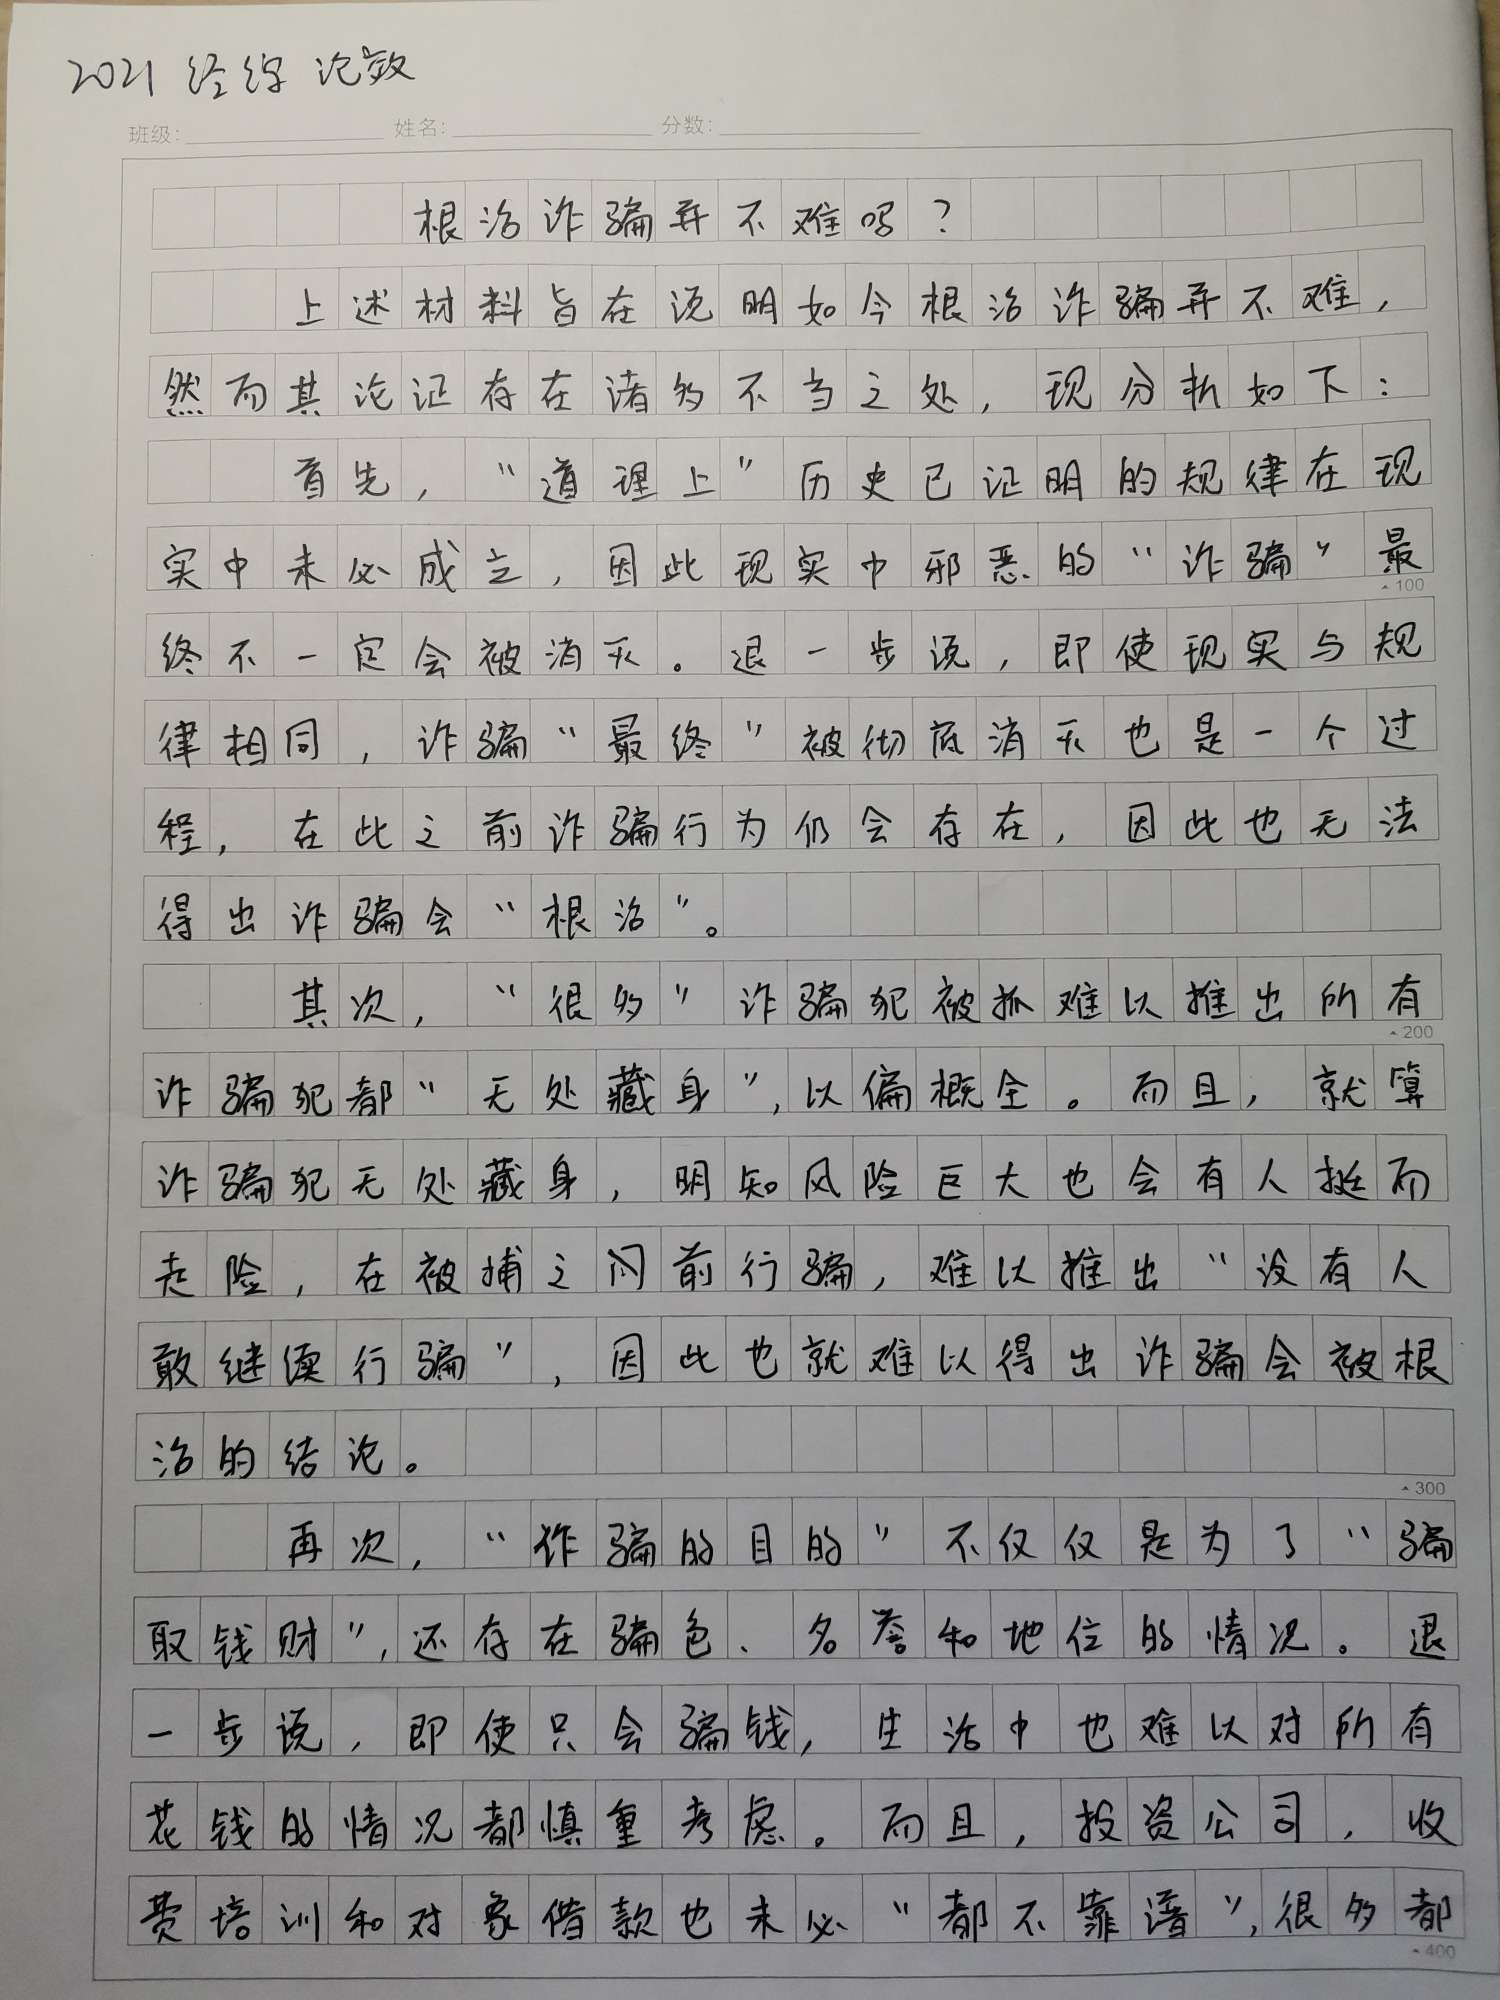 2021 经综 论效
班级： 姓名： 分数：
根治诈骗并不难吗？
上述材料旨在说明如今根治诈骗并不难，
然而其论证存在诸多不当之处，现分析如下：
首先，“道理上”历史已证明的规律在现
实中未必成立，因此现实中邪恶的“诈骗”最
100
终不一定会被消灭。退一步说，即使现实与规
律相同，诈骗“最终”被彻底消灭也是一个过
程，在此之前诈骗行为仍会存在，因此也无法
得出诈骗会“根治”。
其次，“很多”诈骗犯被抓难以推出所有
200
诈骗犯都“无处藏身”，以偏概全。而且，就算
诈骗犯无处藏身，明知风险巨大也会有人挺而
走险，在被捕之间前行骗，难以推出“没有人
敢继续行骗”，因此也就难以得出诈骗会被根
治的结论。
300
再次，“诈骗的目的”不仅仅是为了“骗
取钱财”，还存在骗色、名誉和地位的情况。退
一步说，即使只会骗钱，生活中也难以对所有
花钱的情况都慎重考虑。而且，投资公司，收
费培训和对象借款也未必“都不靠谱”，很多都
400